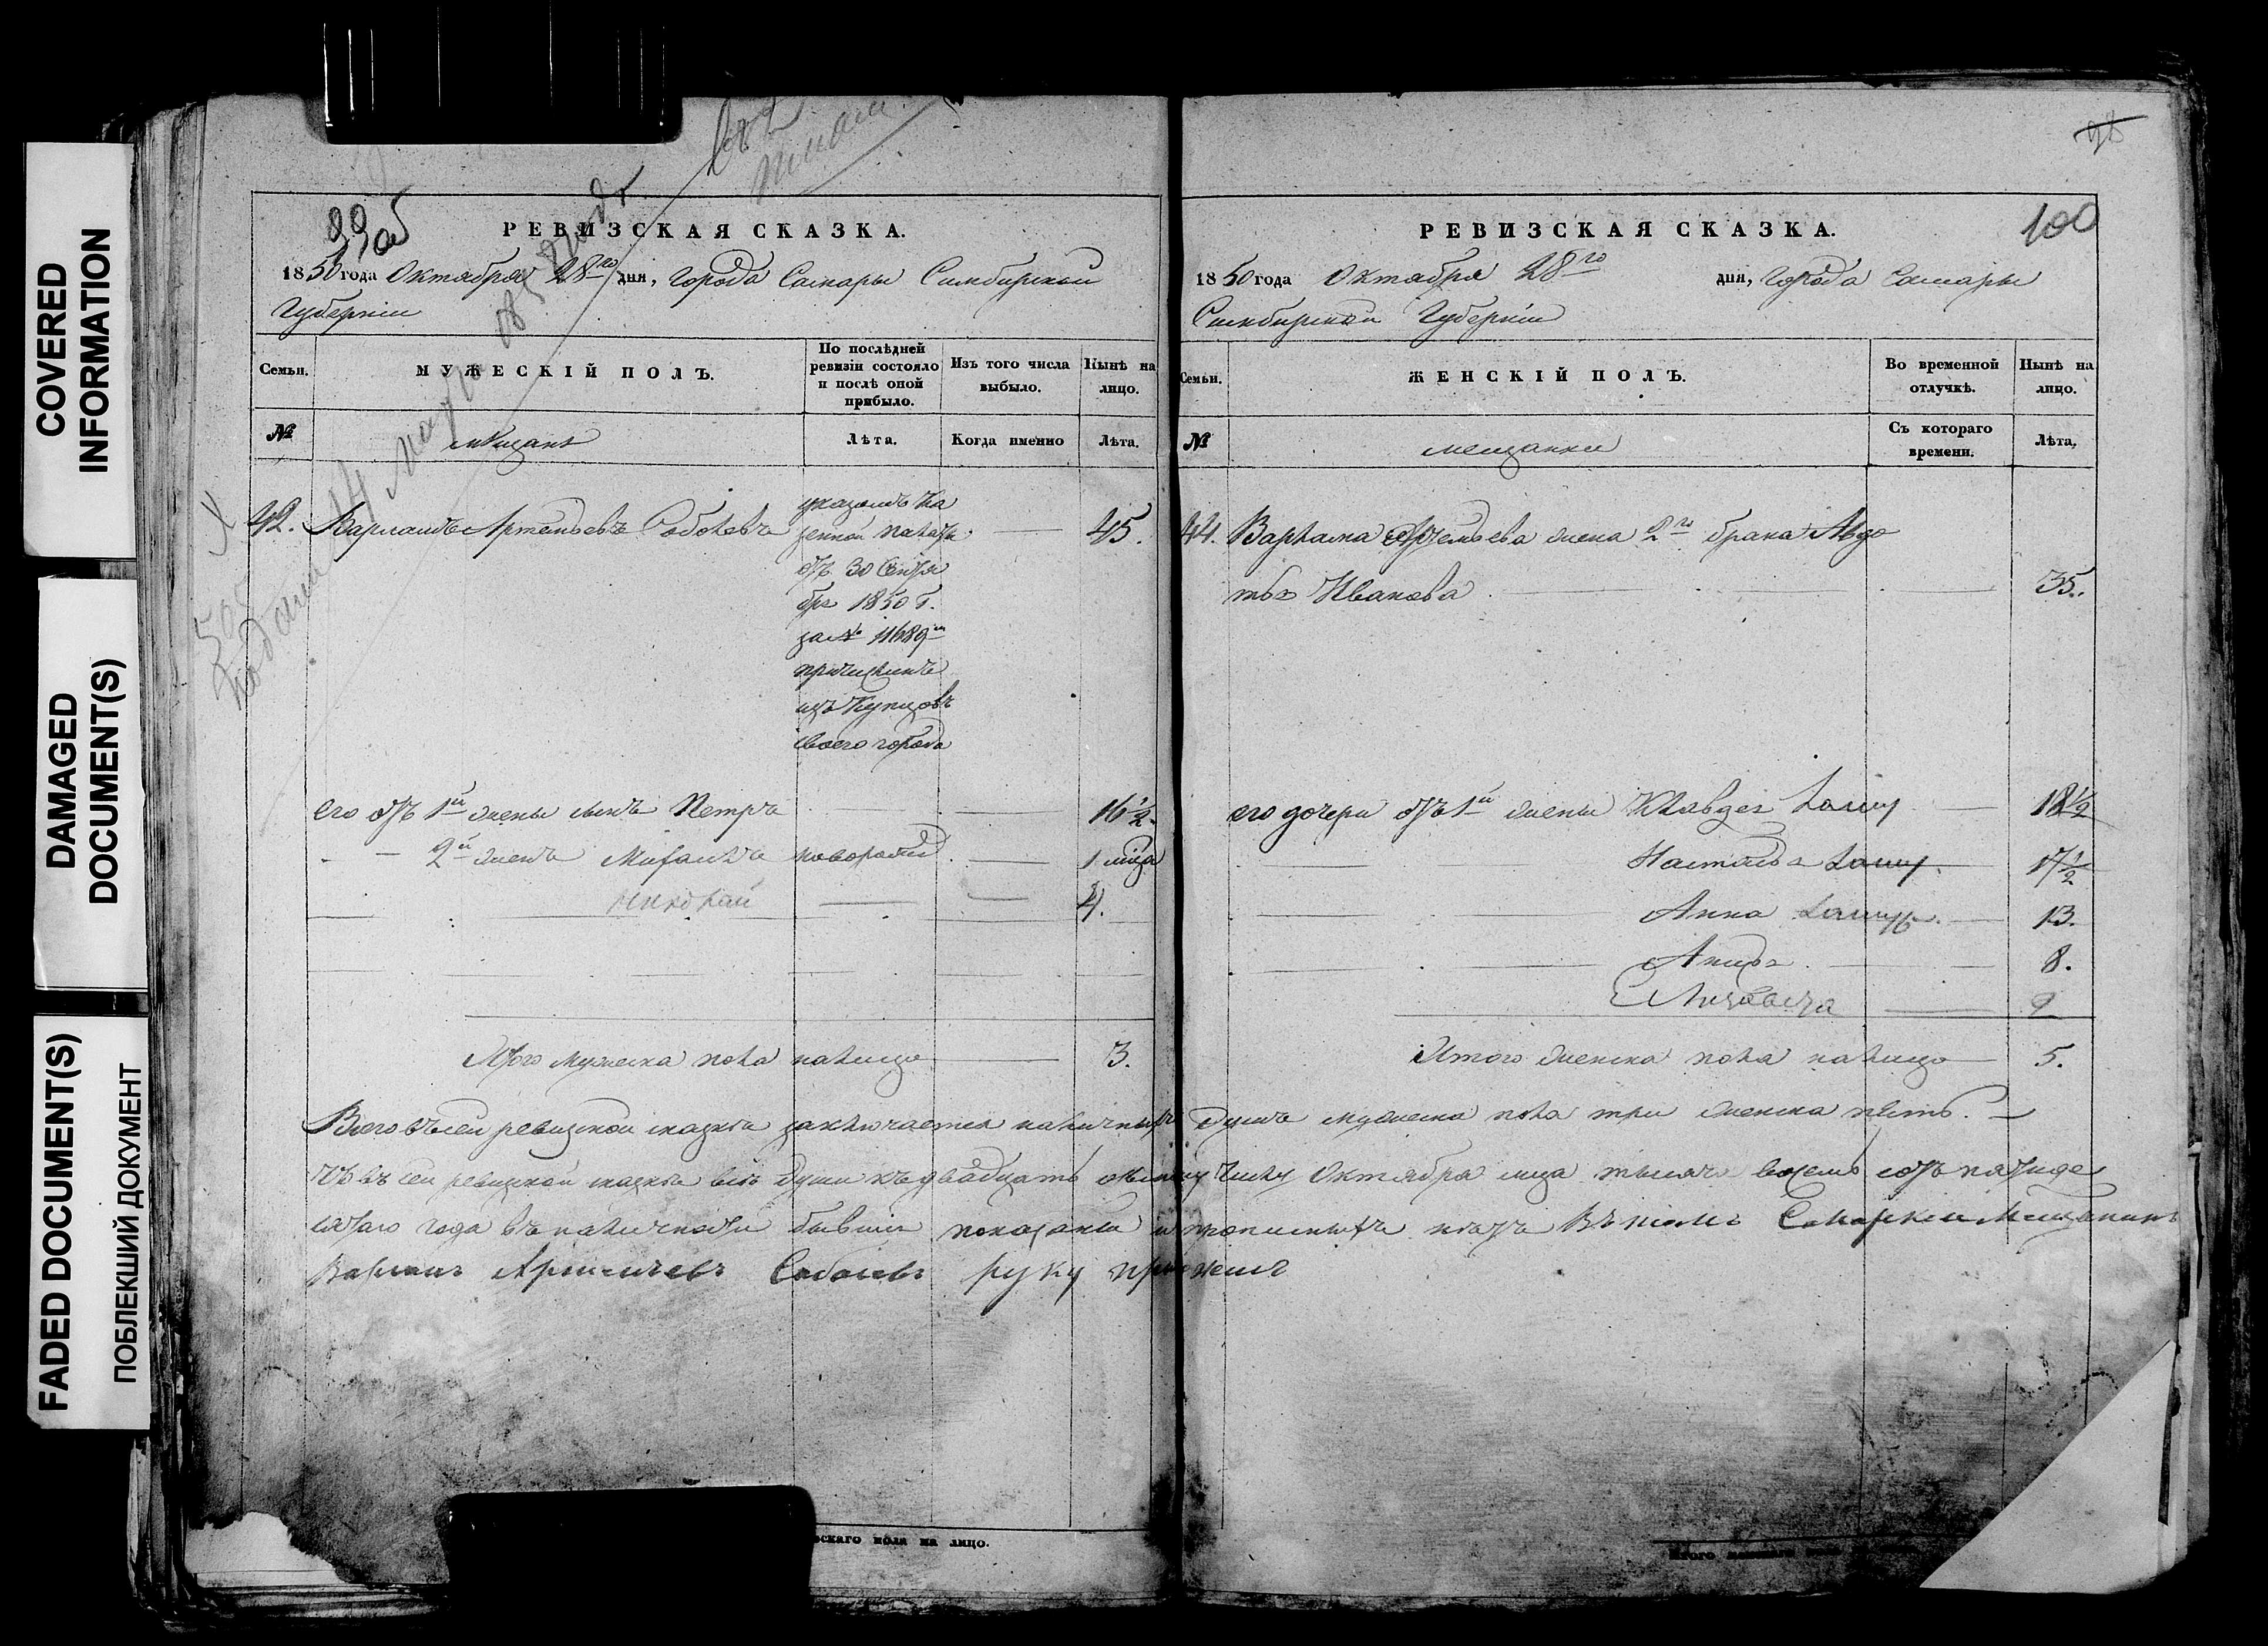 COVERED INFORMATION
DAMAGED DOCUMENT(S)
FADED DOCUMENT(S)
ПОБЛЕКШИЙ ДОКУМЕНТ
99об
РЕВИЗСКАЯ СКАЗКА.
1850 года Октября 28го дня, города Самары Симбирской
Губерніи
Семьи.
МУЖЕСКІЙ ПОЛЪ.
По послѣдней ревизіи состояло и послѣ оной прибыло.
Изъ того числа выбыло.
Нынѣ на лицо.
№
мѣщане
Лѣта.
Когда именно
Лѣта.
42. Варламъ Артемьевъ Соболевъ
указомъ Ка
зенной палаты
отъ 30 Сентя
бря 1850 г.
за № 11689м
причисленъ
изъ Купцовъ
своего города
45.
его отъ 1й жены сынъ Петръ 16½.
2й жены Михаилъ новорожд 1 мца
Николай 4.
Итого мужеска пола налицо 3.
100
РЕВИЗСКАЯ СКАЗКА.
1850 года Октября 28го дня, города Самары
Симбирской Губерніи
Семьи.
ЖЕНСКІЙ ПОЛЪ.
Во временной отлучкѣ.
Нынѣ на лицо.
№
мещанки
Съ котораго времени.
Лѣта,
44. Варлама Артемьева жена 2го брака Авдо
тья Иванова 35.
его дочери отъ 1й жены Клавдея 18½
Настасья 17½
Анна 13.
8.
Елизавета 2
Итого женска пола налицо 5.
Всего въ сей ревизской сказкѣ заключается наличныхъ душъ мужеска пола три женска пять.
Что въ сей ревизской сказкѣ всѣ души къ двадцать осьмому числу Октября мца тысяча восемь сотъ пятиде
сятаго года въ наличности бывшія показаны и прописныхъ нѣтъ въ томъ Самарской Мещанинъ
Варламъ Артемьевъ Соболевъ руку приложилъ
скаго пола на лицо.